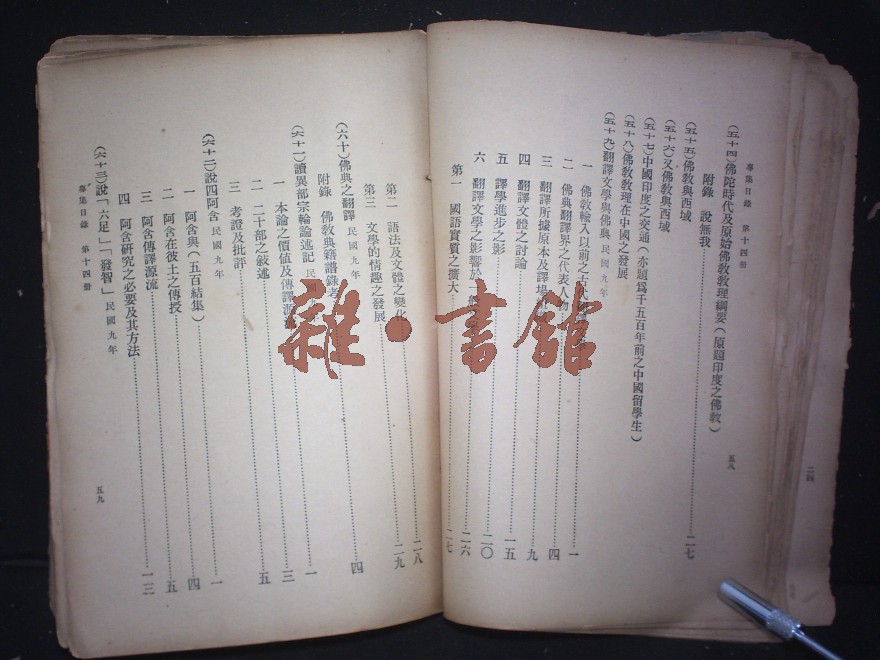 專集目錄 第十四册
(五十四)佛陀時代及原始佛教教理綱要(原題印度之佛教)
附錄 說無我
(五十五)佛教與西域 二七
(五十六)又佛教與西域
(五十七)中國印度之交通(亦題爲千五百年前之中國留學生)
(五十八)佛教教理在中國之發展
(五十九)翻譯文學與佛典 民國九年
一 佛教輸入以前之古 一
二 佛典翻譯界之代表人物 四
三 翻譯所據原本及譯場 九
四 翻譯文體之討論 一五
五 譯學進步之影 二〇
六 翻譯文學之影響於一 二六
第一 國語實質之擴大 二七
五八
二四
第二 語法及文體之變化 二八
第三 文學的情趣之發展 二九
(六十)佛典之翻譯 民國九年
附錄 佛教典籍譜錄考 四
(六十一)讀異部宗輪論述記 民國
一 本論之價値及傳譯源流 一
二 二十部之敍述 三
三 考證及批評 五
(六十二)說四阿含 民國九年
一 阿含與(五百結集) 一
二 阿含在彼土之傳授 四
三 阿含傳譯源流 五
四 阿含研究之必要及其方法 一三
(六十三)說「六足」「發智」 民國九年
專集目錄 第十四册
五九
雜·書館